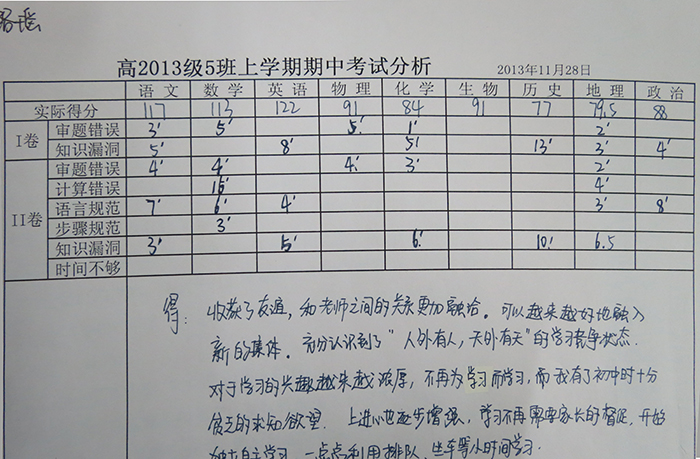 高2013级5班上学期期中考试分析 2013年11月28日
语文 数学 英语 物理 化学 生物 历史 地理 政治
实际得分 117 113 122 91 84 91 77 79.5 88
I卷 审题错误 3' 5' 5' 1' 2'
知识漏洞 5' 8' 5' 13' 3' 4'
II卷 审题错误 4' 4' 4' 3' 2'
计算错误 16' 4'
语言规范 7' 6' 4' 3' 8'
步骤规范 3'
知识漏洞 3' 5' 6' 10' 6.5
时间不够
得: 收获了友谊,和老师之间的关系更加融洽。可以越来越好地融入
新的集体。充分认识到了“人外有人,天外有天”的学习竞争状态.
对于学习的兴趣越来越浓厚,不再为学习而学习,而我有了初中时十分
贫乏的求知欲望. 上进心也逐步增强,学习不再需要家长的督促,开始
独立自主学习,一点点利用排队、坐车等小时间学习.